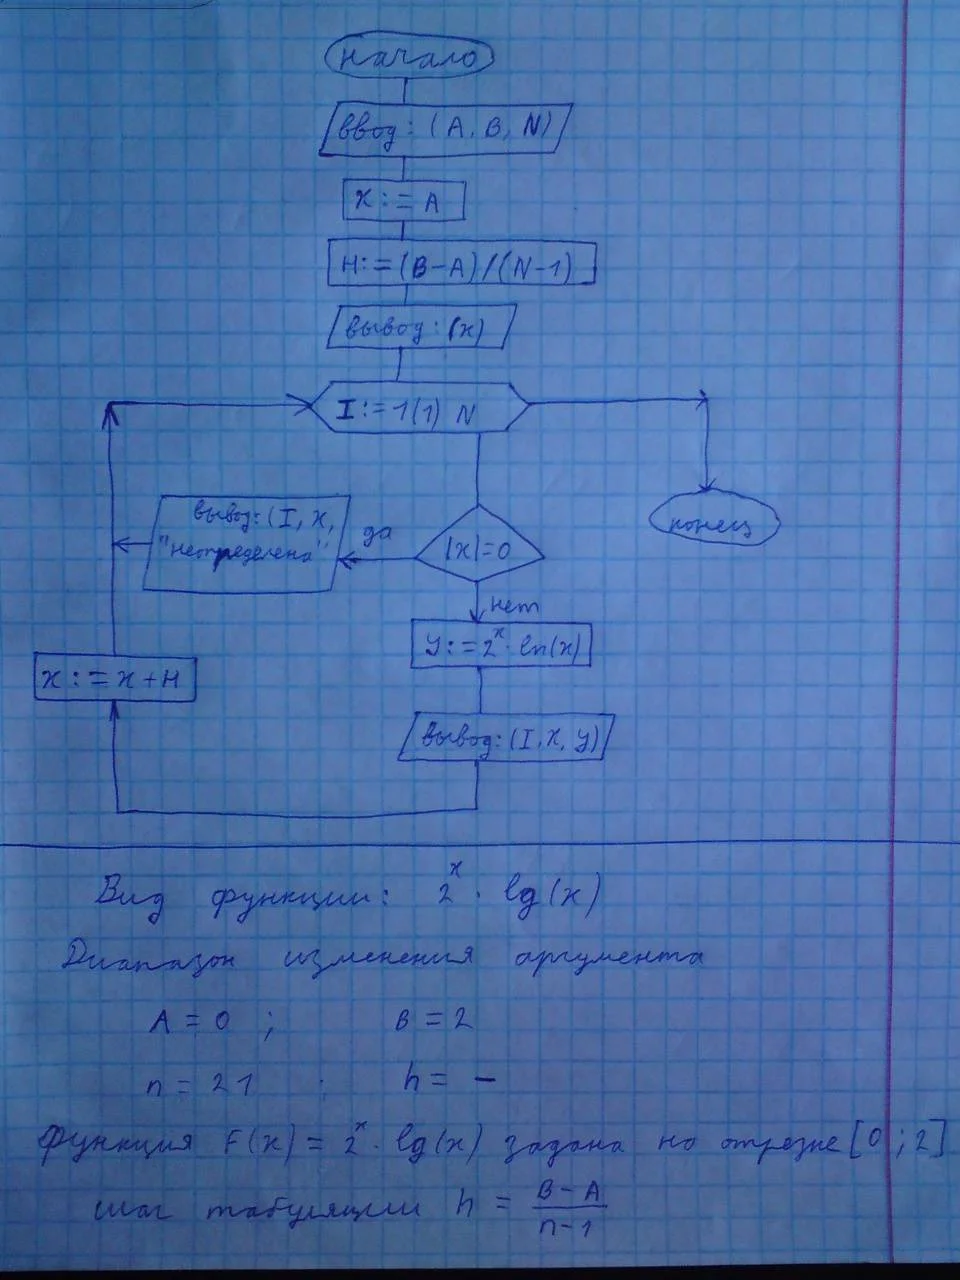 начало
ввод: (A, B, N)
X := A
H := (B-A)/(N-1)
вывод: (x)
I := 1(1) N
вывод: (I, X,
"неопределена"
да
|x|=0
конец
нет
y := 2^x · ln(x)
X := X+H
вывод: (I, X, Y)
Вид функции: 2^x · lg(x)
Диапазон изменения аргумента
A = 0 ; B = 2
n = 21 ; h = -
Функция F(x) = 2^x · lg(x) задана на отрезке [0 ; 2]
шаг табуляции h = B-A / n-1